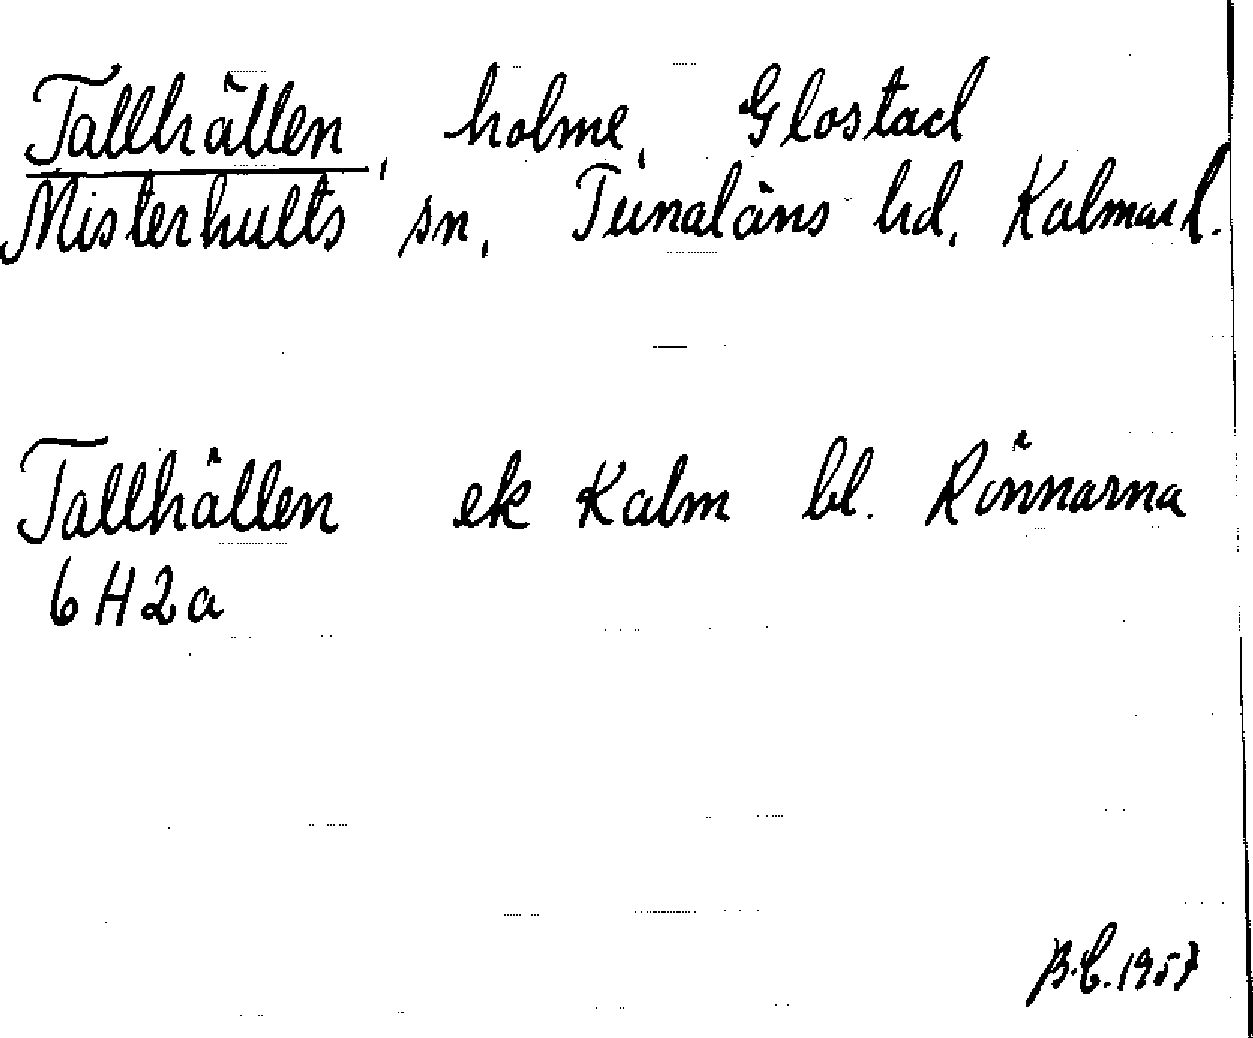 Tallhällen, holme, Glostad
Misterhults sn, Tunaläns hd, Kalmar l.
Tallhällen ek Kalm bl. Rönnarna
6H2a
B.E. 1957